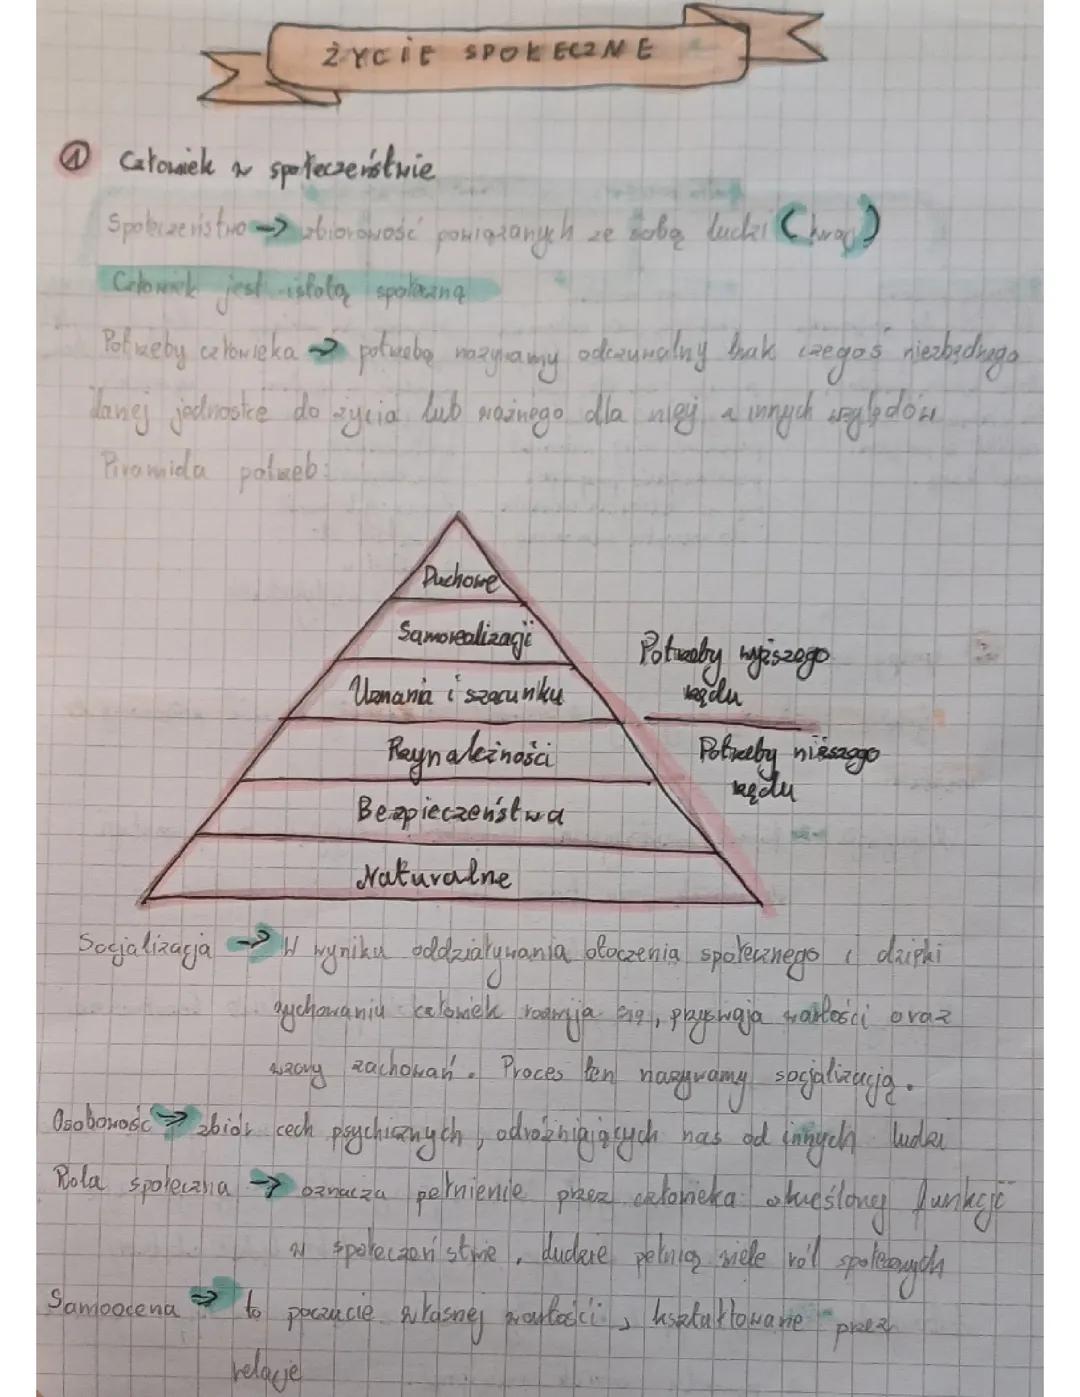 ŻYCIE SPOŁECZNE
① Człowiek w społeczeństwie
Społeczeństwo → zbiorowość powiązanych ze sobą ludzi
Człowiek jest istotą społeczną
Potrzeby człowieka → potrzebą nazywamy odczuwalny brak czegoś niezbędnego
danej jednostce do życia lub ważnego dla niej z innych względów
Piramida potrzeb:
Duchowe
Samorealizacji
Uznania i szacunku
Przynależności
Bezpieczeństwa
Naturalne
Potrzeby wyższego
rzędu
Potrzeby niższego
rzędu
Socjalizacja → W wyniku oddziaływania otoczenia społecznego i dzięki
wychowaniu człowiek rozwija się, przyswaja wartości oraz
wzory zachowań. Proces ten nazywamy socjalizacją.
Osobowość → zbiór cech psychicznych, odróżniających nas od innych ludzi
Rola społeczna → oznacza pełnienie przez człowieka określonej funkcji
w społeczeństwie. Ludzie pełnią wiele ról społecznych
Samoocena → to poczucie własnej wartości, kształtowane przez
relacje